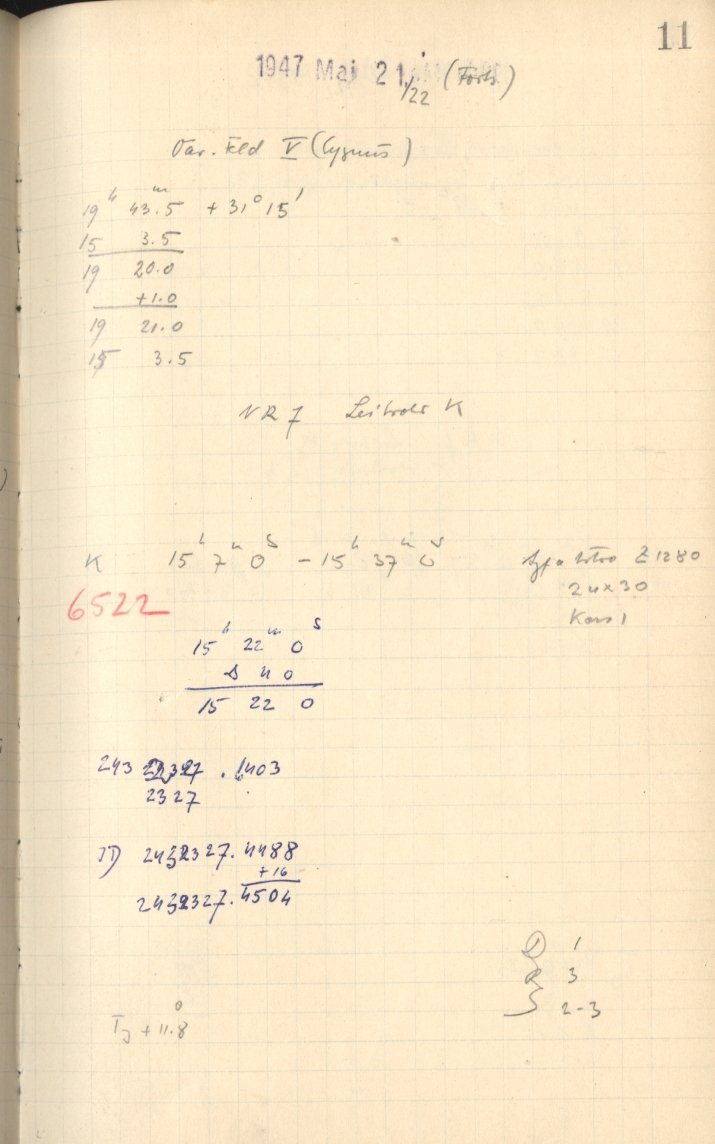 11
1947 Maj 21./22 (Forts)
Var. Feld V (Cygnus)
19ʰ 43.5ᵐ + 31° 15'
15 3.5
19 20.0
+1.0
19 21.0
15 3.5
NR 7 K
K 15ʰ 7ᵐ 0ˢ – 15ʰ 37ᵐ 0ˢ
Z 1280
24x30
6522
Kass 1
15ʰ 22ᵐ 0ˢ
0
15 22 0
243 .1403
2327
JD 2432327.4488
+16
2432327.4504
D 1
R 3
S 2-3
+ 11.8°